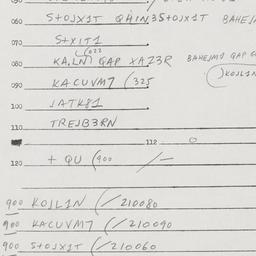 060 S+OJX1T Q4IN,3S+OJX1T BAHEJM
070 S+X1T1
(022
080 KA,LN7 GAP XA,Z3R BAHEJM7 GAP
090 KACUVM7 (325 )KOJL1N
100 JATK81
110 TREJB3RN
112 0
120 + QU (900 /—
900 KOJL1N (/210080
900 KACUVM7 (/210090
900 S+OJX1T (/210060